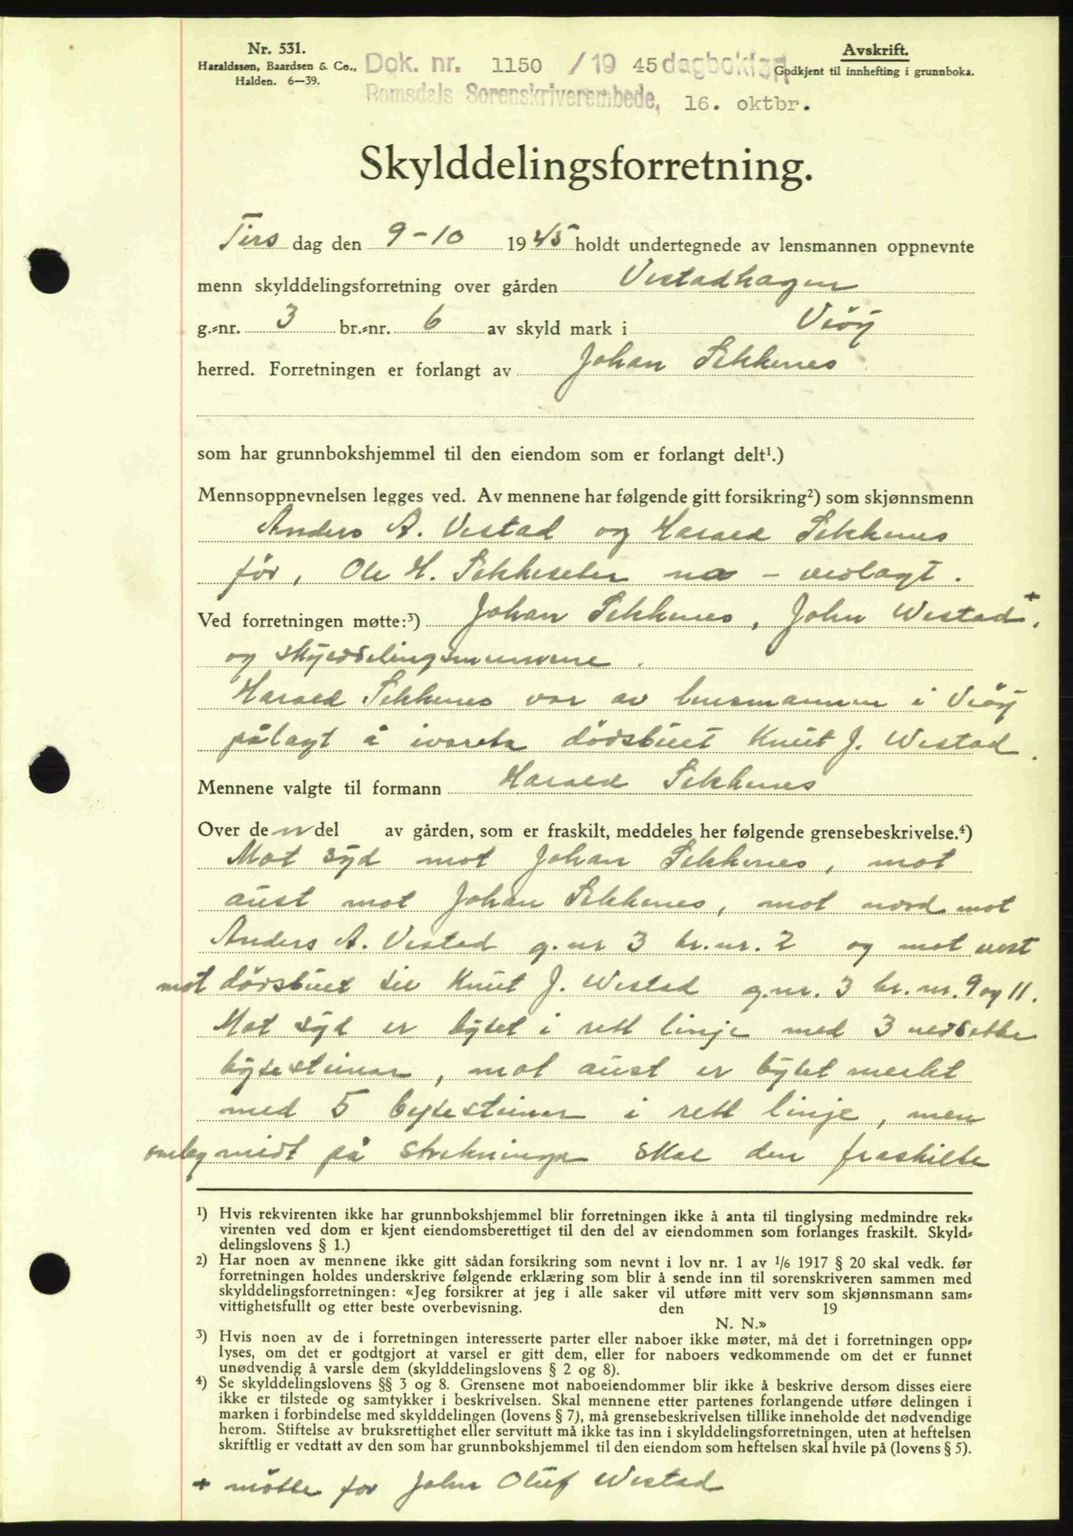 Nr. 531.
Haraldssen, Baardsen & Co.,
Halden. 6—39.
Dok. nr. 1150 /19 45 dagbokført
Romsdals Sorenskriverembede, 16. oktbr.
Avskrift.
Godkjent til innhefting i grunnboka.
Skylddelingsforretning.
Tirs dag den 9-10 1945 holdt undertegnede av lensmannen oppnevnte
menn skylddelingsforretning over gården Vestadhagen
g.-nr. 3 br.-nr. 6 av skyld mark i Vëöy
herred. Forretningen er forlangt av Johan Sekkenes
som har grunnbokshjemmel til den eiendom som er forlangt delt¹.)
Mennsoppnevnelsen legges ved. Av mennene har følgende gitt forsikring²) som skjønnsmenn
Anders A. Vestad og Harald Sekkenes
før, Ole H. Sekkeseter no - vedlagt.
Ved forretningen møtte:³) Johan Sekkenes, John Westad+.
og skylddelingsmennene.
Harald Sekkenes var av lensmannen i Vëöy
pålagt å ivareta dødsbuet Knut J. Westad.
Mennene valgte til formann Harald Sekkenes
Over den del av gården, som er fraskilt, meddeles her følgende grensebeskrivelse.⁴)
Mot syd mot Johan Sekkenes, mot
aust mot Johan Sekkenes, mot nord mot
Anders A. Vestad g.nr 3 br.nr. 2 og mot vest
mot dødsbuet til Knut J. Westad g.nr. 3 br. nr. 9 og 11.
Mot syd er bytet i rett linje med 3 nedsette
bytesteinar, mot aust er bytet merket
med 5 bytesteinar i rett linje, men
omlag midt på strekninga skal den fraskilte
¹) Hvis rekvirenten ikke har grunnbokshjemmel blir forretningen ikke å anta til tinglysing medmindre rek-
virenten ved dom er kjent eiendomsberettiget til den del av eiendommen som forlanges fraskilt. Skyld-
delingslovens § 1.)
²) Har noen av mennene ikke gitt sådan forsikring som nevnt i lov nr. 1 av 1/6 1917 § 20 skal vedk. før
forretningen holdes underskrive følgende erklæring som blir å sende inn til sorenskriveren sammen med
skylddelingsforretningen: «Jeg forsikrer at jeg i alle saker vil utføre mitt verv som skjønnsmann sam-
vittighetsfullt og etter beste overbevisning. den 19
N. N.»
³) Hvis noen av de i forretningen interesserte parter eller naboer ikke møter, må det i forretningen opp-
lyses, om det er godtgjort at varsel er gitt dem, eller for naboers vedkommende om det er funnet
unødvendig å varsle dem (skylddelingslovens § 2 og 8).
⁴) Se skylddelingslovens §§ 3 og 8. Grensene mot naboeiendommer blir ikke å beskrive dersom disses eiere
ikke er tilstede og samtykker i beskrivelsen. Skal mennene etter partenes forlangende utføre delingen i
marken i forbindelse med skylddelingen (lovens § 7), må grensebeskrivelsen tillike inneholde det nødvendige
herom. Stiftelse av bruksrettighet eller servitutt må ikke tas inn i skylddelingsforretningen, uten at heftelsen
skriftlig er vedtatt av den som har grunnbokshjemmel til den eiendom som heftelsen skal hvile på (lovens § 5).
+ møtte for John Oluf Westad